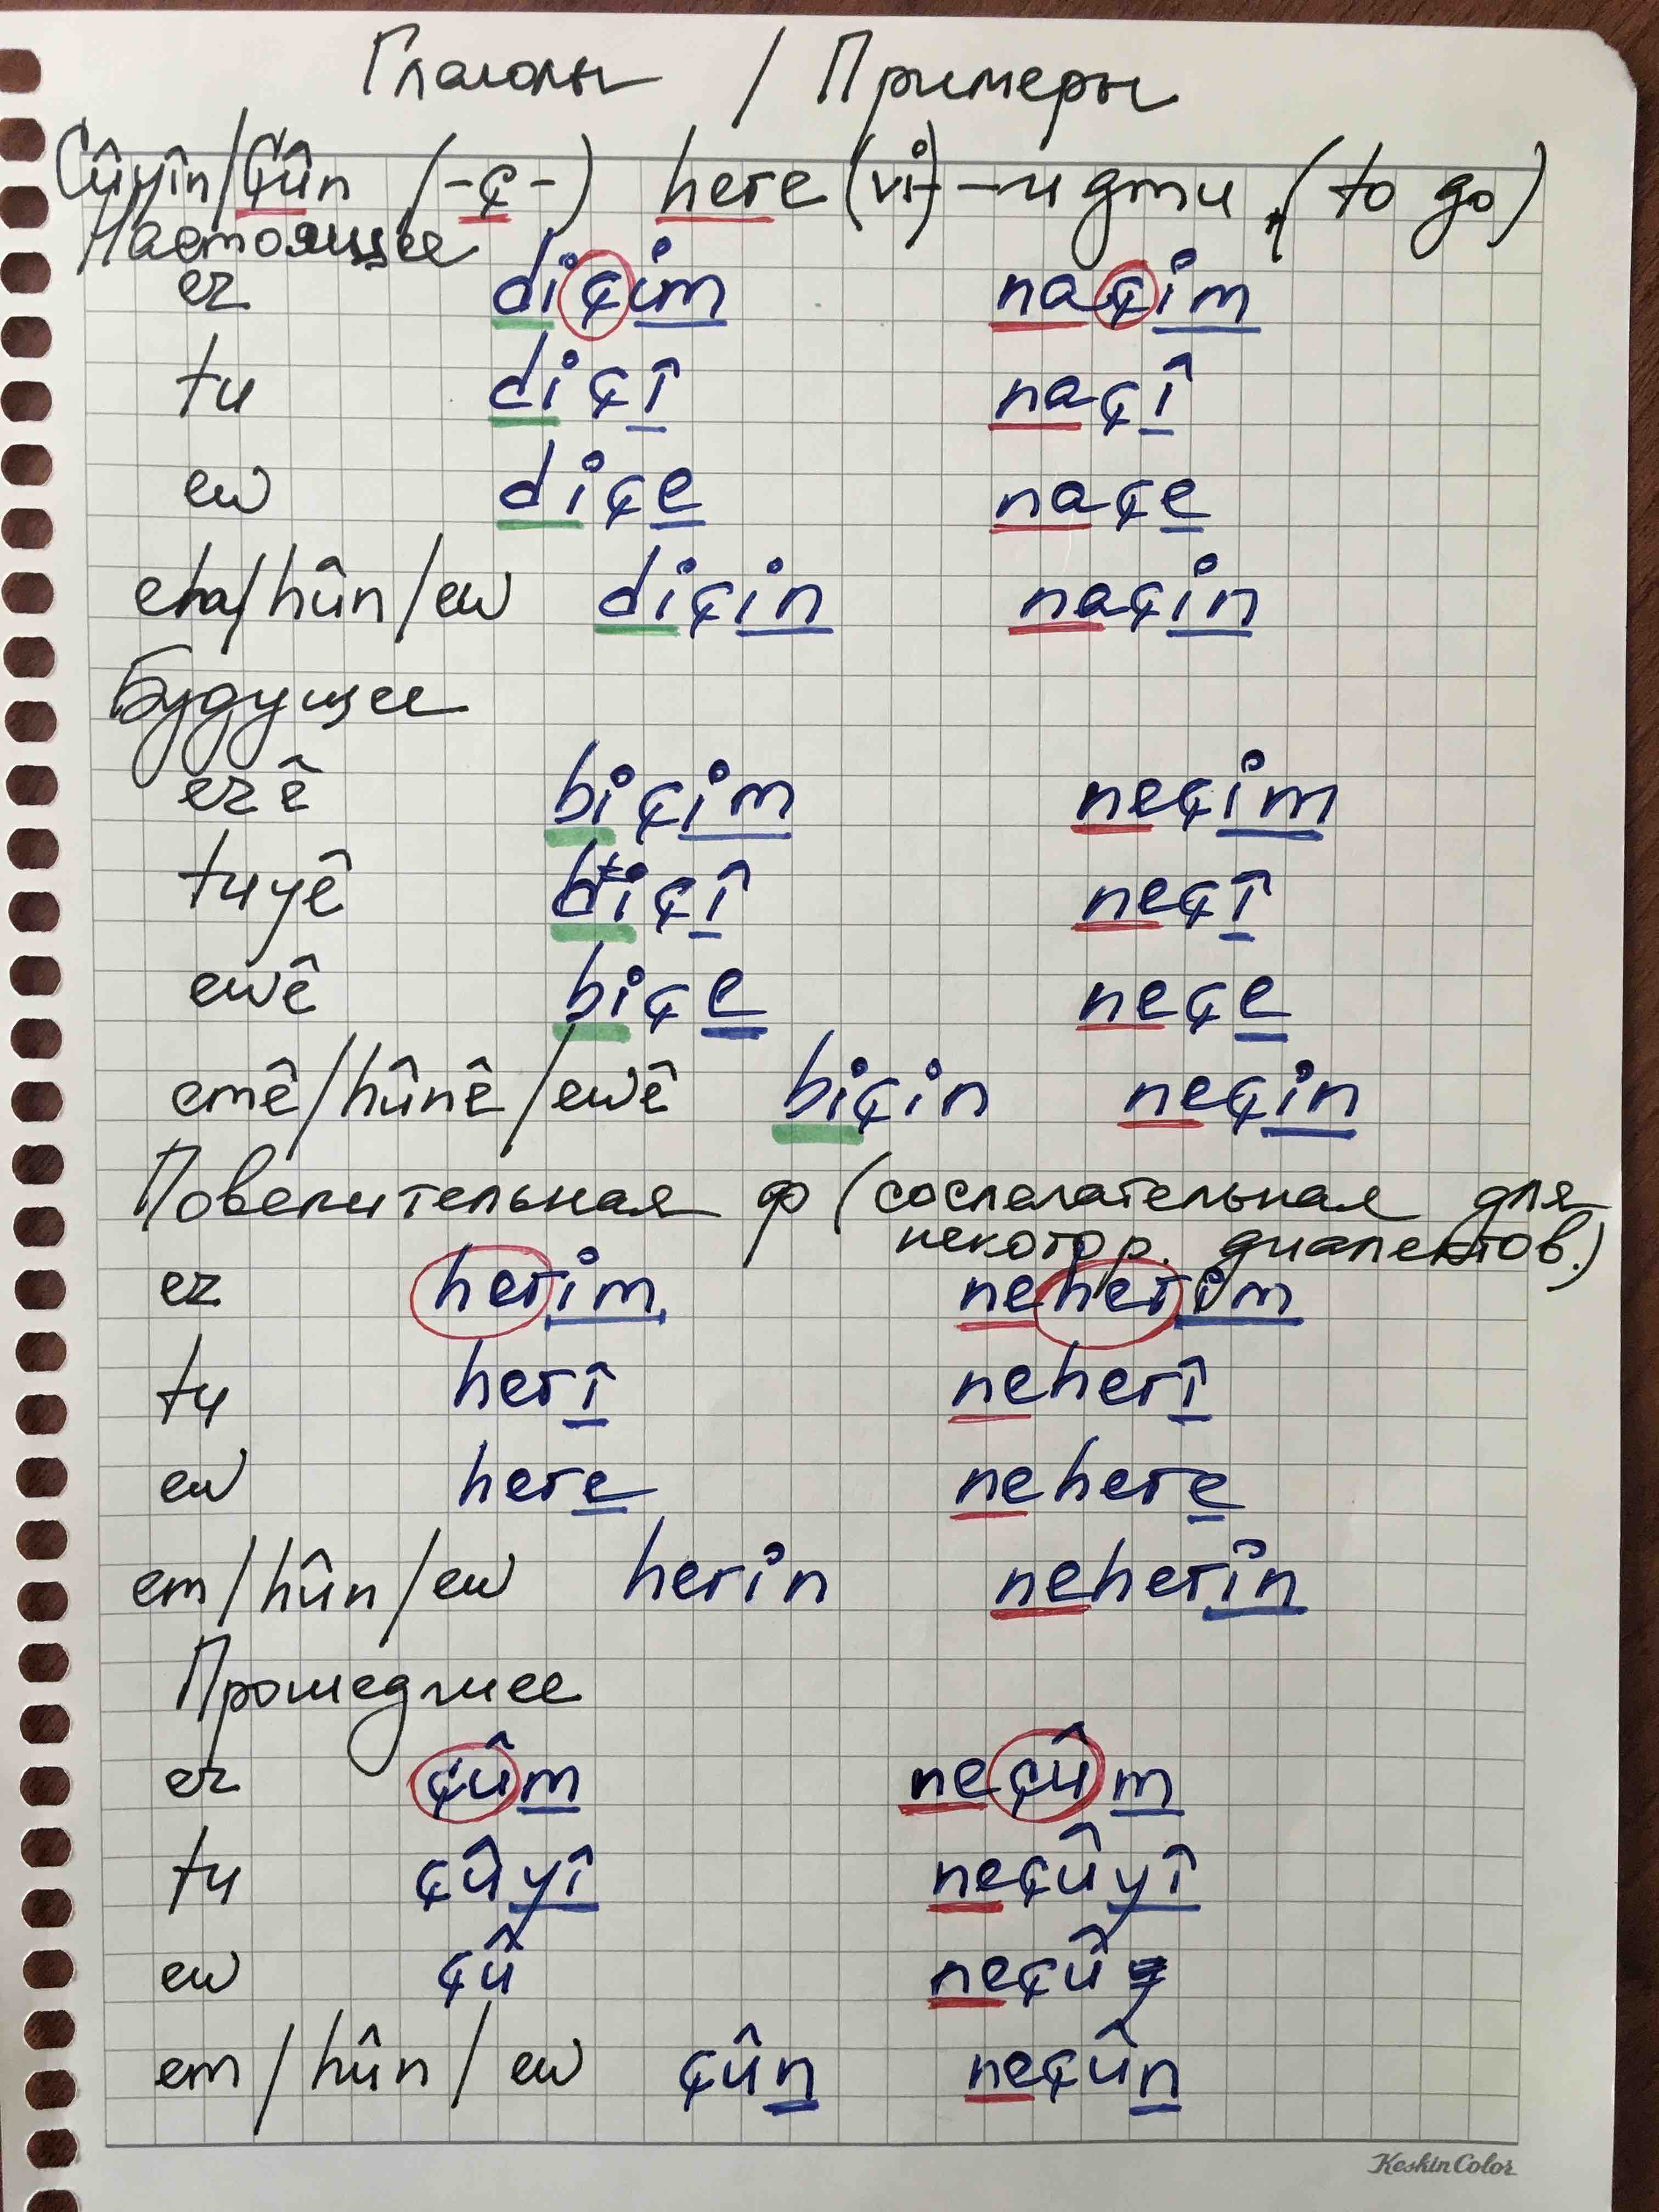 Глаголы / Примеры
Cûyîn/Çûn (-ç-) here (vi) - идти, (to go)
Настоящее
ez diçim naçim
tu diçî naçî
ew diçe naçe
em/hûn/ew diçin naçin
Будущее
ezê biçim neçim
tuyê biçî neçî
ewê biçe neçe
emê/hûnê/ewê biçin neçin
Повелительная ф (сослагательная для
некотор. диалектов.)
ez herim neherim
tu herî neherî
ew here nehere
em/hûn/ew herin neherîn
Прошедшее
ez çûm neçûm
tu çûyî neçûyî
ew çû neçû
em/hûn/ew çûn neçûn
KeskinColor